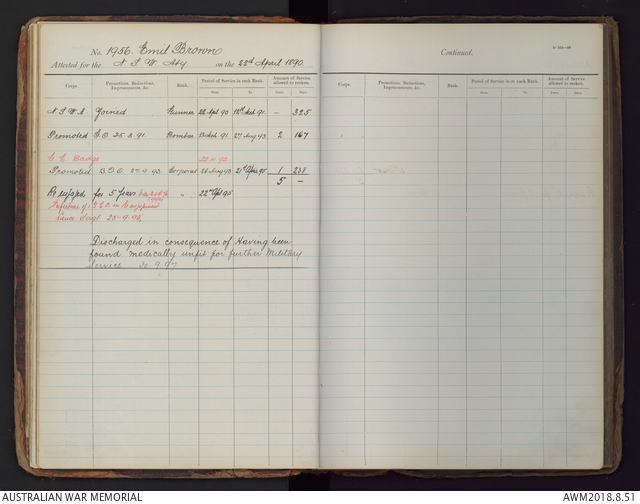 No. 1956. Emil Brown
Attested for the N S W Aty on the 22nd April 1890.
Corps. Promotions, Reductions, Imprisonments, &c. Rank. Period of Service in each Rank. Amount of Service allowed to reckon.
From To Years. Days.
N S W A Joined Gunner 22 Apl 90 12th Mch 91 – 325
Promoted G.O 25.3.91. Bombar 13 Mch 91 27 Aug 93 2 167
G. C. Badge 22.4.92
Promoted B.O.O 27.9.93 Corporal 28 Aug 93 21st Apl 95 1 238
5 –
Re engaged for 5 Years " 22nd Apl 95
Discharged in consequence of Having been
found medically unfit for further Military
Service 30.9.97
Continued.
Corps. Promotions, Reductions, Imprisonments, &c. Rank. Period of Service in each Rank. Amount of Service allowed to reckon.
From To Years. Days.
AUSTRALIAN WAR MEMORIAL AWM2018.8.51